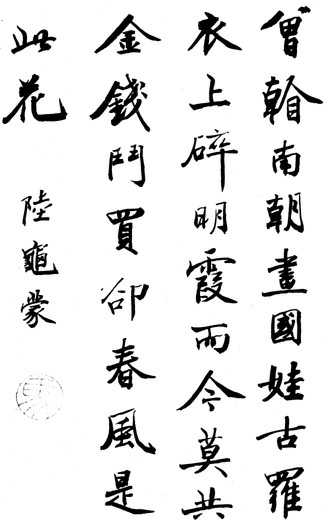 曾看南朝畫國娃古羅
衣上碎明霞而今莫共
金錢鬥買卻春風是
此花
陸龜蒙